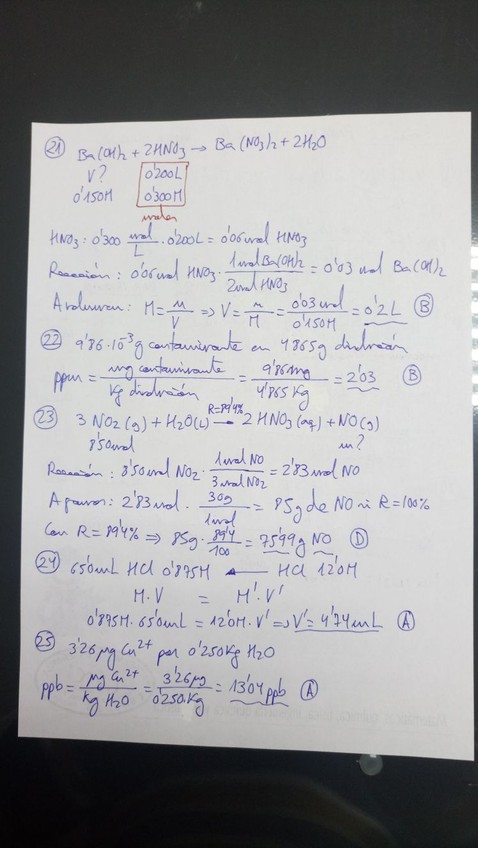 21 Ba(OH)2 + 2HNO3 → Ba(NO3)2 + 2H2O
V? 0'200L
0'150M 0'300M
moles
HNO3: 0'300 mol/L · 0'200L = 0'06 mol HNO3
Reacción: 0'06 mol HNO3 · 1 mol Ba(OH)2 / 2 mol HNO3 = 0'03 mol Ba(OH)2
A volumen: M = n/V ⇒ V = n/M = 0'03 mol / 0'150M = 0'2 L B
22 9'86·10⁻³g contaminante en 4865g disolución
ppm = mg contaminante / Kg disolución = 9'86 mg / 4'865 Kg = 2'03 B
23 3 NO2(g) + H2O(l) R=89'4% → 2 HNO3(aq) + NO(g)
8'50 mol m?
Reacción: 8'50 mol NO2 · 1 mol NO / 3 mol NO2 = 2'83 mol NO
A gramos: 2'83 mol · 30g / 1 mol = 85g de NO si R=100%
Con R = 89'4% ⇒ 85g · 89'4 / 100 = 75'99 g NO D
24 65'0 mL HCl 0'875M ← HCl 12'0M
M·V = M'·V'
0'875M · 65'0mL = 12'0M · V' ⇒ V' = 4'74 mL A
25 3'26 µg Cu²⁺ por 0'250 Kg H2O
ppb = µg Cu²⁺ / Kg H2O = 3'26 µg / 0'250 Kg = 13'04 ppb A